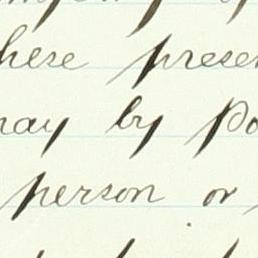 hese presen
may by Po
person or